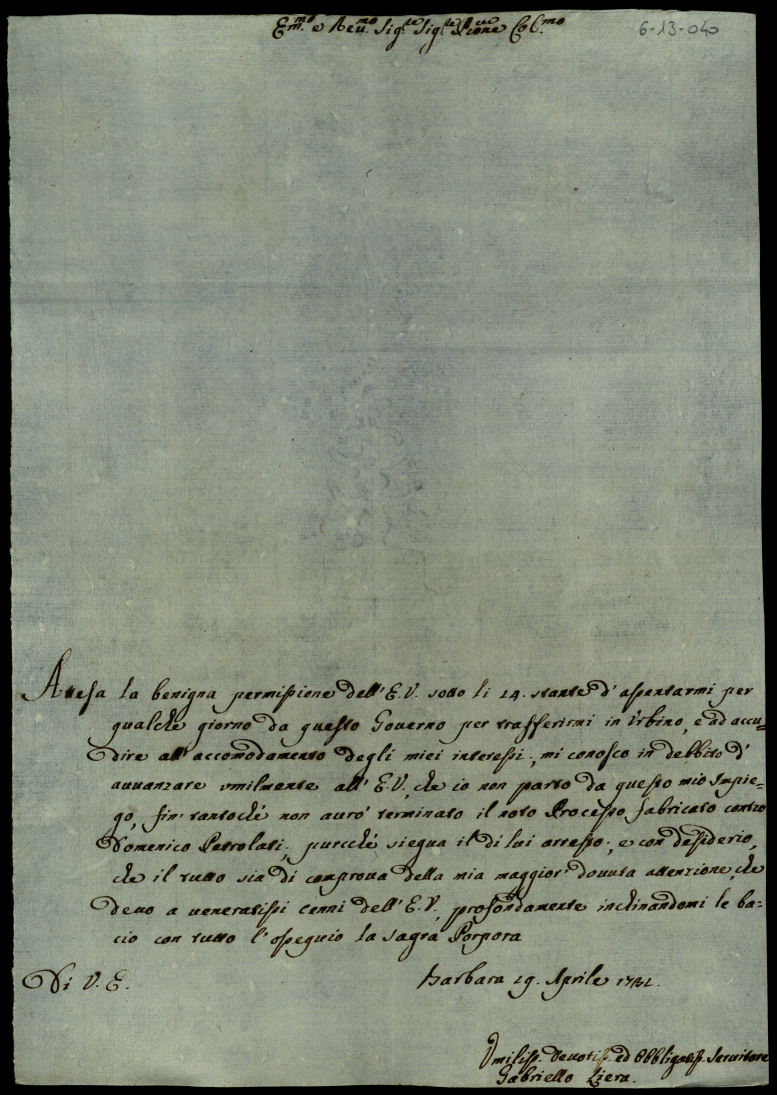 Em.mo e Reu.mo Sig.re Sig.re P.rone Col.mo
6-13-040
Attesa la benigna permissione dell' E.V. sotto li 14. stante d' assentarmi per
qualche giorno da questo Governo per trasferirmi in Urbino, e ad accu-
dire all' accomodamento degli miei interessi, mi conosco in debbito d'
auuanzare umilmente all' E.V., che io non parto da questo mio Impie-
go, fin' tantochè non aurò terminato il noto Processo fabricato contro
Domenico Petrolati, purcchè siegua il di lui arresto; e con desiderio,
che il tutto sia di comprova della mia maggior' douuta attenzione, che
deuo a ueneratissi cenni dell' E.V., profondamente inchinandomi le ba-
cio con tutto l' ossequio la sagra Porpora
Di V. E.
Barbara 19. Aprile
Vmiliss. Deuotiss. ed Obbligatiss. Seruitore
Gabriello Liera.